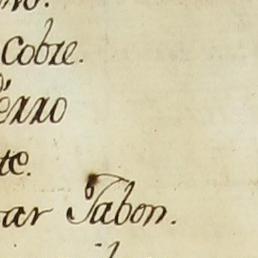 Cobre.
érro
te.
ar Tabon.